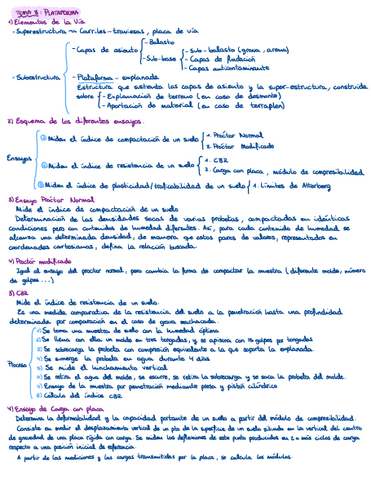 TEMA 8: PLATAFORMA
1) Elementos de la Vía
- Superestructura → Carriles-traviesas, placa de vía
- Balasto
- Capas de asiento
- sub-balasto (grava, arena)
- Sub-base
- Capas de fundación
- Capas anticontaminante
- Subestructura
- Plataforma - explanada
Estructura que sustenta las capas de asiento y la super-estructura, construida
sobre
- Explanación de terreno (en caso de desmonte)
- Aportación de material (en caso de terraplén)
2) Esquema de los diferentes ensayos.
Ensayos
① Miden el índice de compactación de un suelo
1. Proctor Normal
2. Proctor Modificado
② Miden el índice de resistencia de un suelo
1. CBR
2. Carga con placa, módulo de compresibilidad
③ Miden el índice de plasticidad/traficabilidad de un suelo
1. Límites de Atterberg
3) Ensayo Proctor Normal
Mide el índice de compactación de un suelo
Determinación de las densidades secas de varias probetas, compactadas en idénticas
condiciones pero con contenidos de humedad diferentes. Así, para cada contenido de humedad se
alcanza una determinada densidad, de manera que estos pares de valores, representados en
coordenadas cartesianas, defina la relación buscada.
4) Proctor modificado
Igual al ensayo del proctor normal, pero cambia la forma de compactar la muestra (diferente molde, número
de golpes...)
5) CBR
Mide el índice de resistencia de un suelo.
Es una medida comparativa de la resistencia del suelo a la penetración hasta una profundidad
determinada por comparación en el caso de grava machacada.
Proceso
1) Se toma una muestra de suelo con la humedad óptima
2) Se llena con ella un molde en tres tongadas, y se apisona con golpes por tongadas
3) Se sobrecarga la probeta con compresión equivalente a la que soporta la explanada.
4) Se sumerge la probeta en agua durante 4 días
5) Se mide el hinchamiento vertical
6) Se retira el agua del molde, se escurre, se retira la sobrecarga y se saca la probeta del molde.
7) Ensayo de la muestra por penetración mediante prensa y pistón cilíndrico
8) Cálculo del índice CBR
4) Ensayo de Carga con placa
Determina la deformabilidad y la capacidad portante de un suelo a partir del módulo de compresibilidad.
Consiste en medir el desplazamiento vertical de un pto de la superficie de un suelo situado en la vertical del centro
de gravedad de una placa rígida con carga. Se miden las deflexiones de este punto producidas en 2 o más ciclos de carga
respecto a una posición inicial de referencia.
A partir de las mediciones y las cargas transmitidas por la placa, se calcula los módulos.